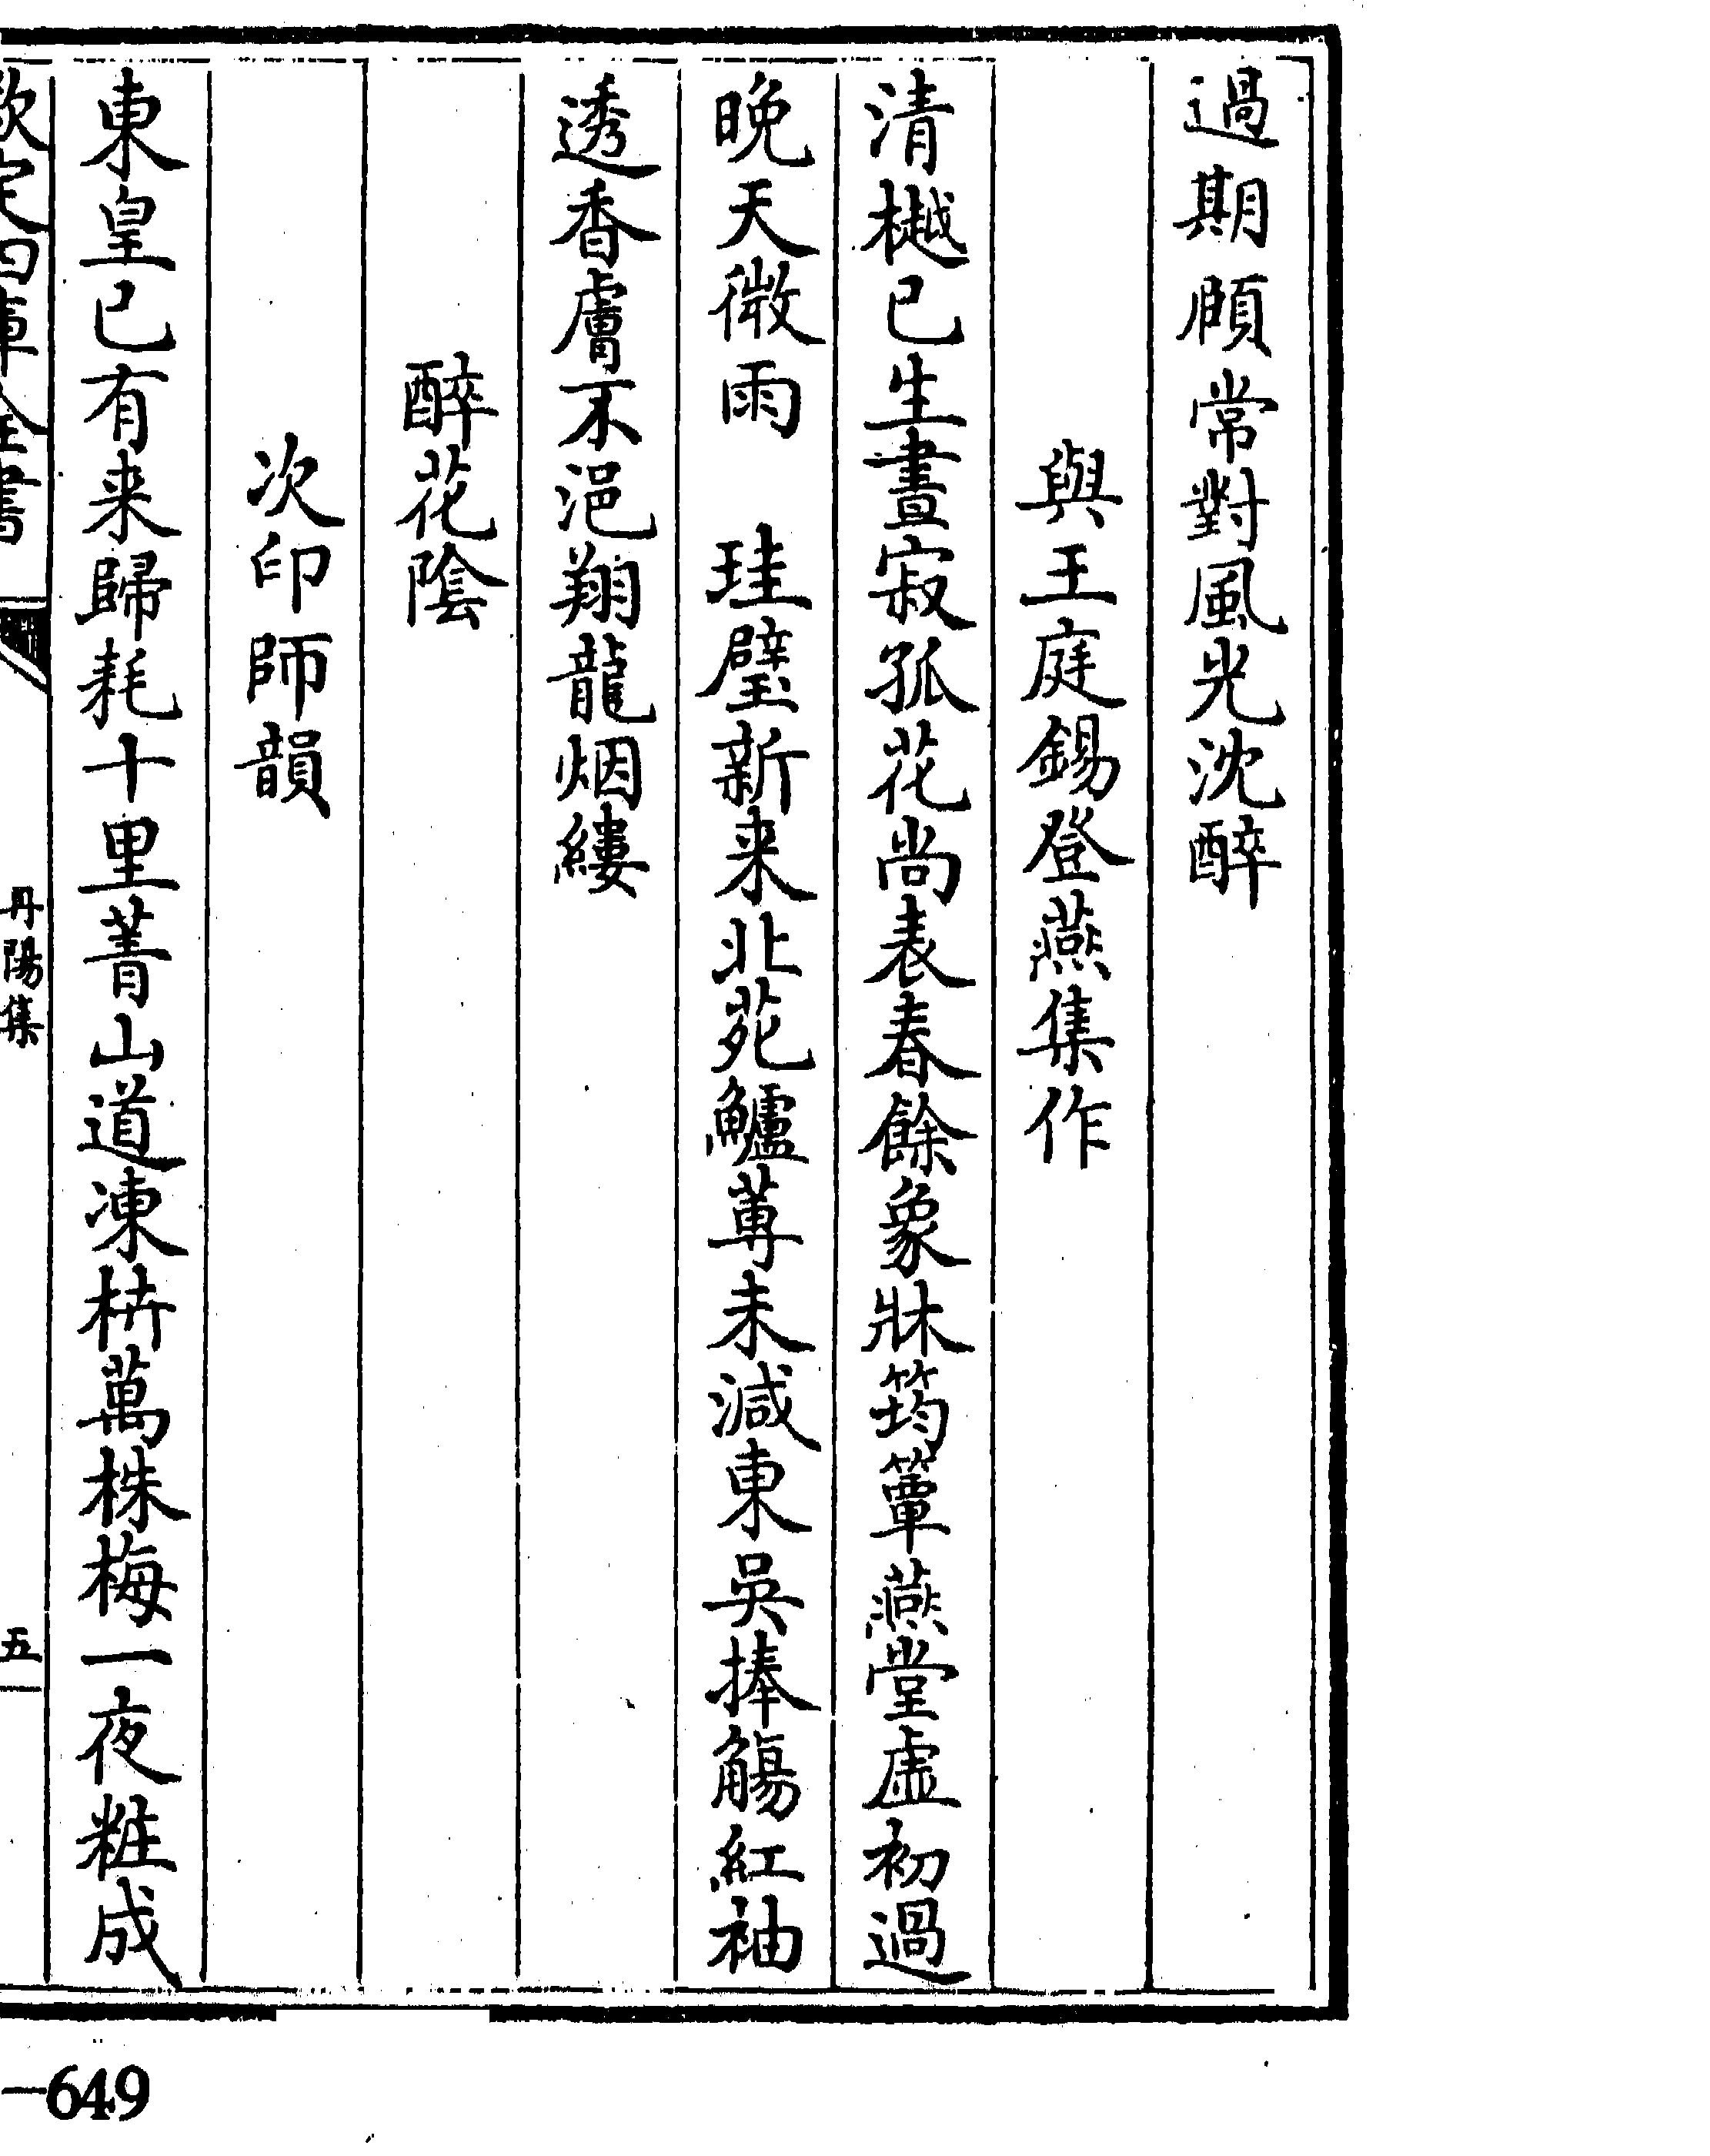 過期頋常對風光沈醉
與王庭錫登燕集作
清樾已生晝寂孤花尚表春餘象牀筠簟燕堂虛初過
晚天微雨　珪璧新来北苑鱸蓴未減東吳捧觴紅袖
透香膚不浥翔龍烟縷
醉花陰
次印師韻
東皇已有来歸耗十里菁山道凍枿萬株梅一夜粧成
欽定四庫全書
丹陽集
五
-649